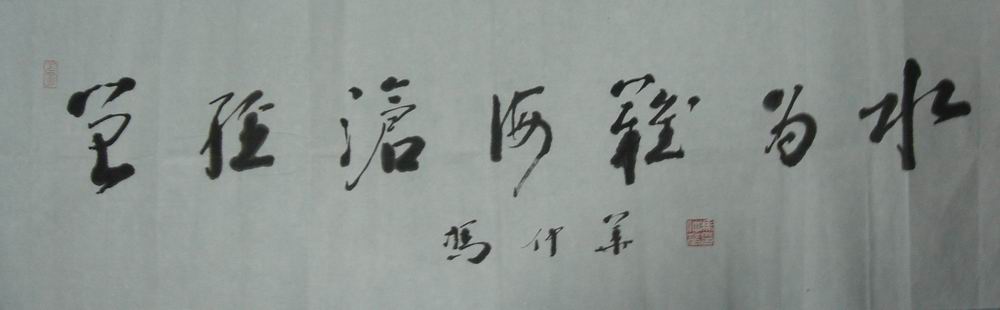 曾經滄海難為水
馮仲華